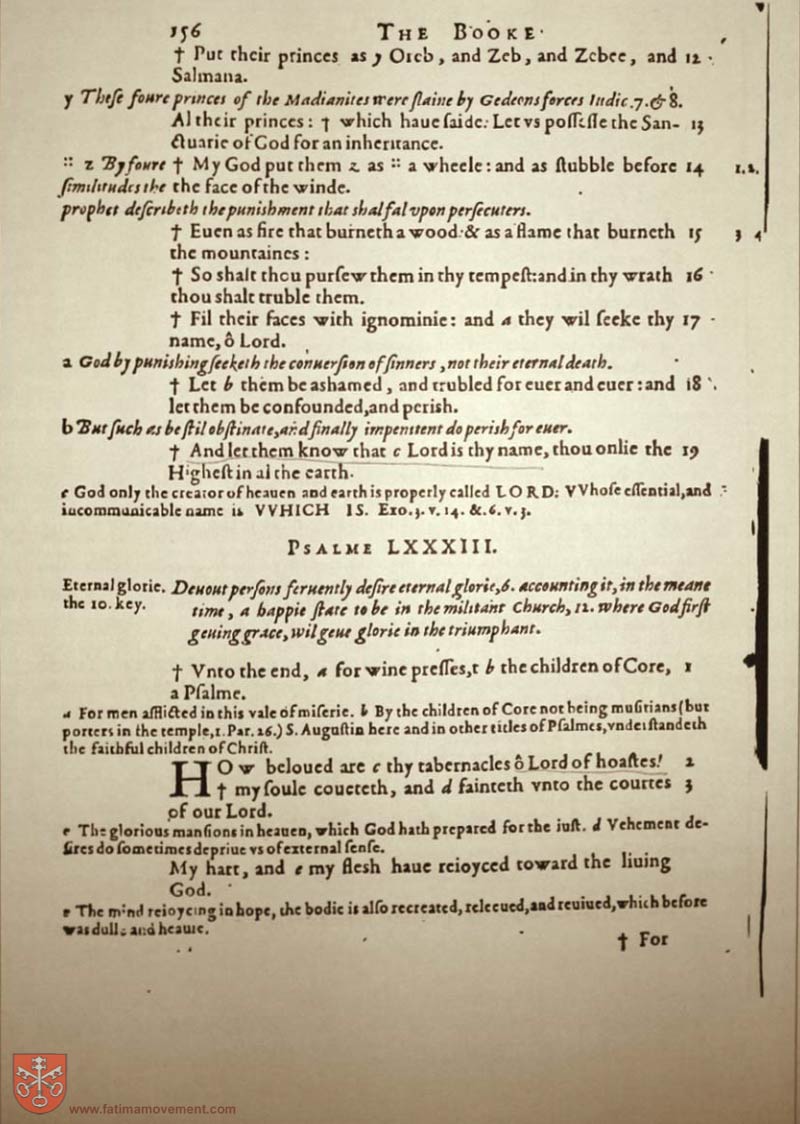 156 THE BOOKE
† Put their princes as y Oreb, and Zeb, and Zebee, and 12
Salmana.
y Theſe foure princes of the Madianites were ſlaine by Gedeons forces Iudic. 7. & 8.
Al their princes: † which haue ſaide: Let vs poſſeſſe the San- 13
ctuarie of God for an inheritance.
:: z By foure † My God put them z as :: a wheele: and as ſtubble before 14 1. 2.
ſimilitudes the the face of the winde.
prophet deſcribeth the punishment that shal fal vpon perſecuters.
† Euen as fire that burneth a wood: & as a flame that burneth 15 3 4
the mountaines:
† So shalt thou purſew them in thy tempeſt: and in thy wrath 16
thou shalt truble them.
† Fil their faces with ignominie: and a they wil ſeeke thy 17
name, ô Lord.
a God by punishing ſeeketh the conuerſion of ſinners, not their eternal death.
† Let b them be ashamed, and trubled for euer and euer: and 18
let them be confounded, and perish.
b But ſuch as be ſtil obſtinate, and finally impenitent do perish for euer.
† And let them know that c Lord is thy name, thou onlie the 19
Higheſt in al the earth.
c God only the creator of heauen and earth is properly called LORD: VVhoſe eſſential, and
incommunicable name is VVHICH IS. Exo. 3. v. 14. &. 6. v. 3.
PSALME LXXXIII.
Eternal glorie. Deuout perſons feruently deſire eternal glorie, 6. accounting it, in the meane
the 10. key. time, a happie ſtate to be in the militant Church, 12. where God firſt
geuing grace, wil geue glorie in the triumphant.
† Vnto the end, a for wine preſſes, t b the children of Core, 1
a Pſalme.
a For men afflicted in this vale of miſerie. b By the children of Core not being muſitians (but
porters in the temple, 1. Par. 26.) S. Auguſtin here and in other titles of Pſalmes, vnderſtandeth
the faithful children of Chriſt.
HOw beloued are c thy tabernacles ô Lord of hoaſtes! 2
† my ſoule coueteth, and d fainteth vnto the courtes 3
of our Lord.
c The glorious manſions in heauen, which God hath prepared for the iuſt. d Vehement de-
ſires do ſometimes depriue vs of external ſenſe.
My hart, and e my flesh haue reioyced toward the liuing
God.
e The mind reioycing in hope, the bodie is alſo recreated, releeued, and reuiued, which before
was dull, and heauie.
† For
www.fatimamovement.com